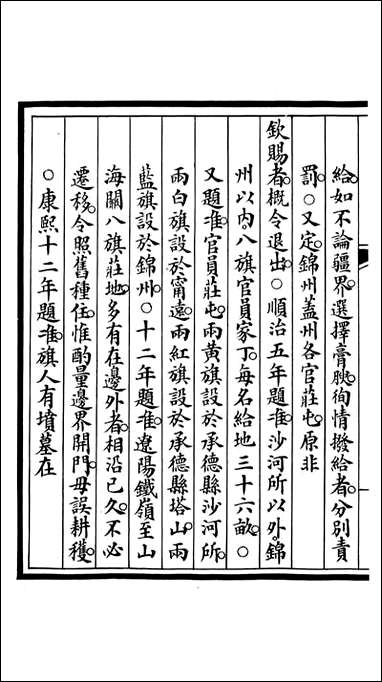 給如不論疆界選擇膏腴徇情撥給者分別責
罰○又定錦州蓋州各官莊屯原非
欽賜者概令退出○順治五年題准沙河所以外錦
州以內八旗官員家丁每名給地三十六畝○
又題准官員莊屯兩黃旗設於承德縣沙河所
兩白旗設於甯遠兩紅旗設於承德縣塔山兩
藍旗設於錦州○十二年題准遼陽鐵嶺至山
海關八旗莊地多有在邊外者相沿已久不必
遷移令照舊種住惟酌量邊界開門毋誤耕穫
○康熙十二年題准旗人有墳墓在